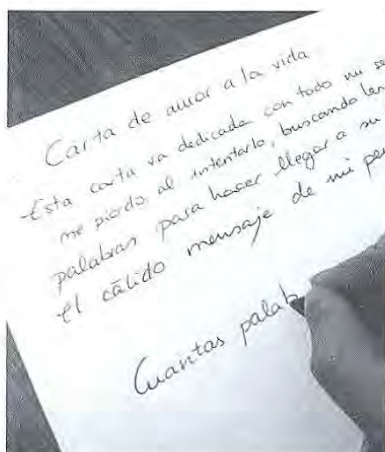 Carta de amor a la vida
Esta carta va dedicada con todo mi se
me pierdo al intentarlo, buscando
palabras para hacer llegar a su
el cálido mensaje de mi
Cuantas palab